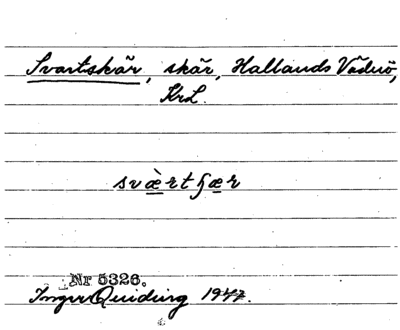 Svartskär, skär, Hallands Väderö,
KrL.
svæ̀rtʃær
Nr 5326.
Inger Quiding 1947.